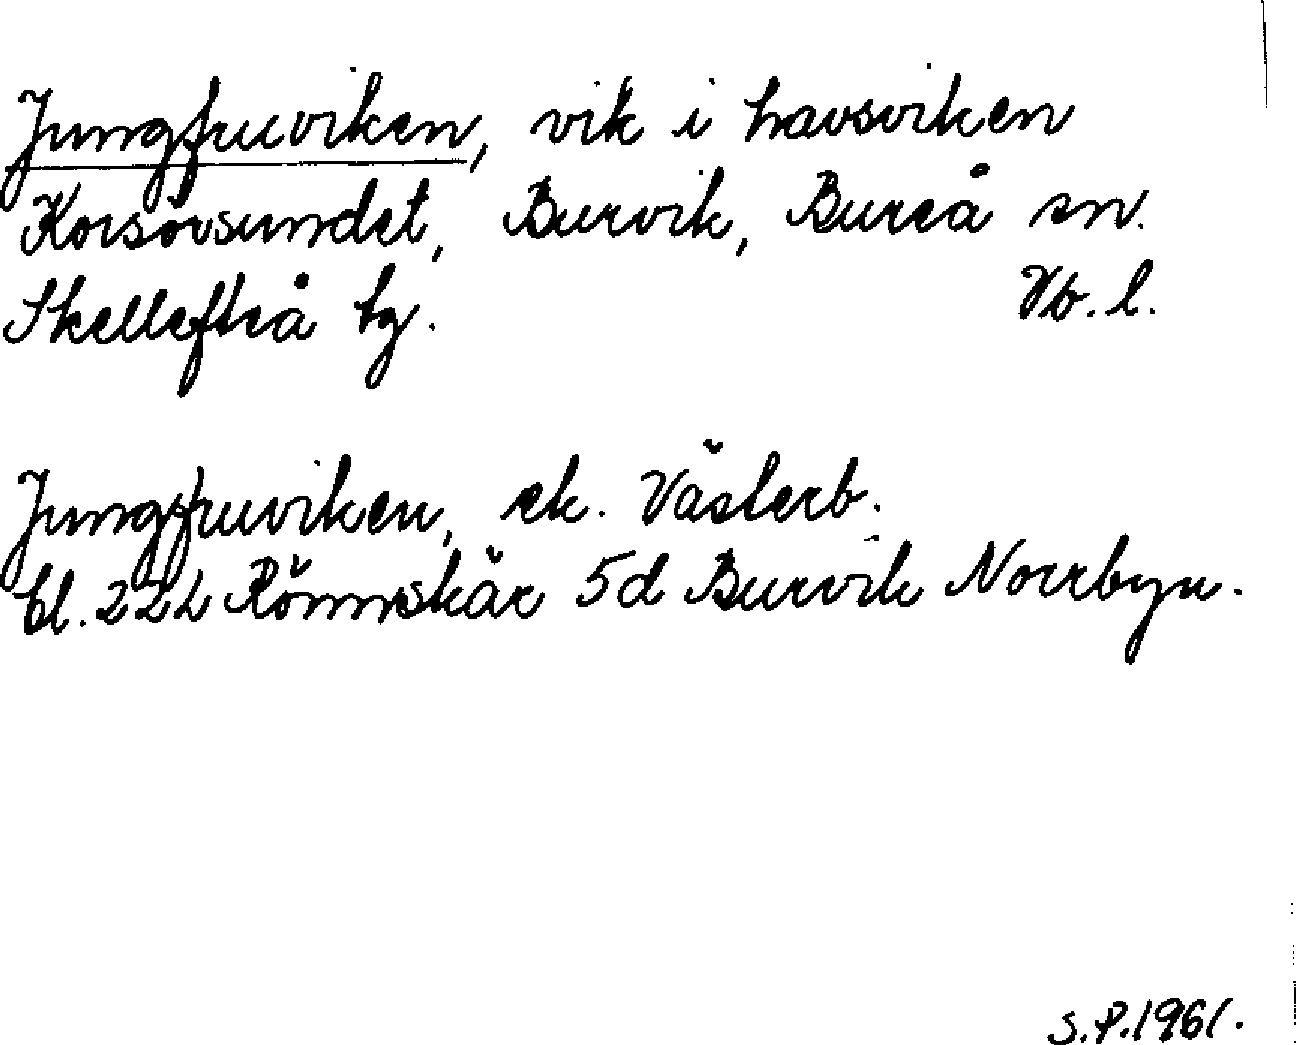 Jungfruviken, vik i havsviken
Korsörsundet, Burvik, Bureå sn.
Skellefteå tg. Vb. l.
Jungfruviken, ek. Västerb.
bl. 222 Rönnskär 5d Burvik Norrbyn.
S.P. 1961.